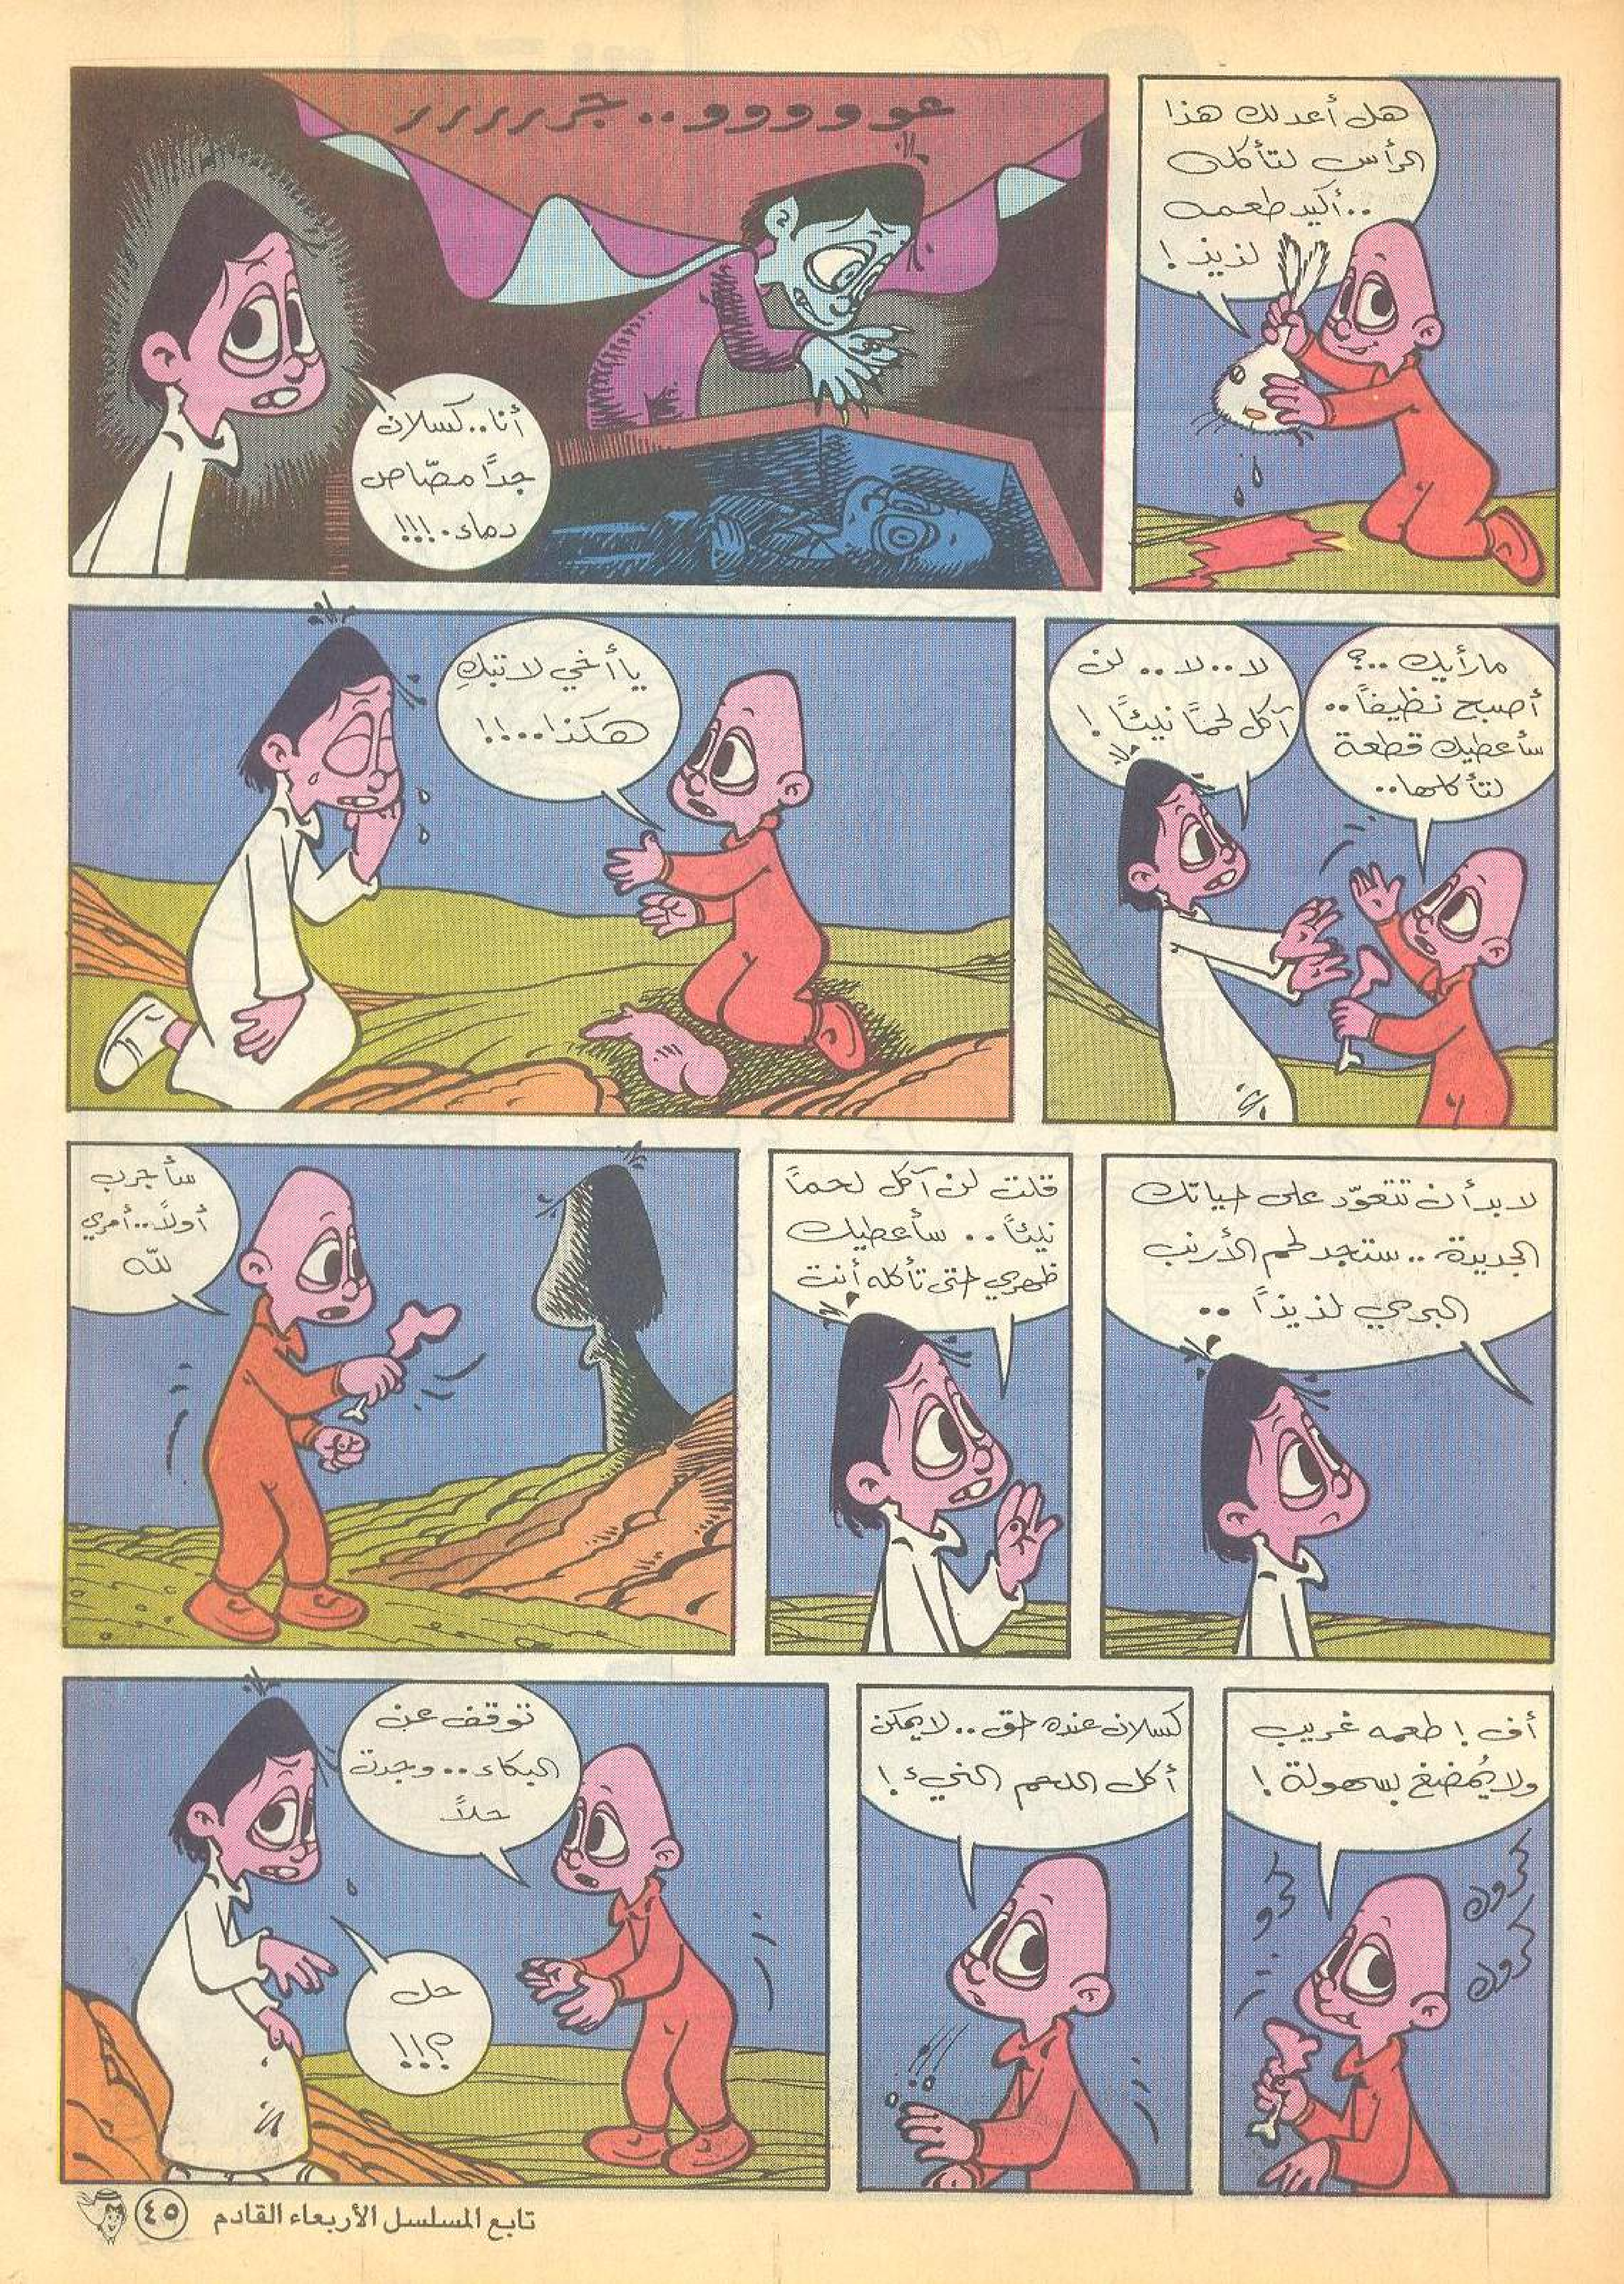 هل أعد لك هذا
الرأس لتأكله
..أكيد طعمه
لذيذ!
عووووو..جررررر
أنا..كسلان
جدًا مصّاص
دماء.!!!
مارأيك..؟
أصبح نظيفًا..
سأعطيك قطعة
لتأكلها..
لا..لا..لن
آكل لحمًا نيئًا!
ياأخي لاتبكِ
هكذا...!!
لابدأن تتعوّد على حياتك
الجديدة..ستجد لحم الأرنب
البرمي لذيذًا..
قلت لن آكل لحمًا
نيئًا.. سأعطيك
ظهري حتى تأكله أنت
سأجرب
أولاً..أمري
لله
أف! طعمه غريب
ولايُمضغ بسهولة!
كرو
كروك
كروك
كسلان عنده حق..لايمكن
أكل اللحم النيء!
توقف عن
البكاء..وجدت
حلاً
حل
؟!!
تابع المسلسل الأربعاء القادم
٤٥